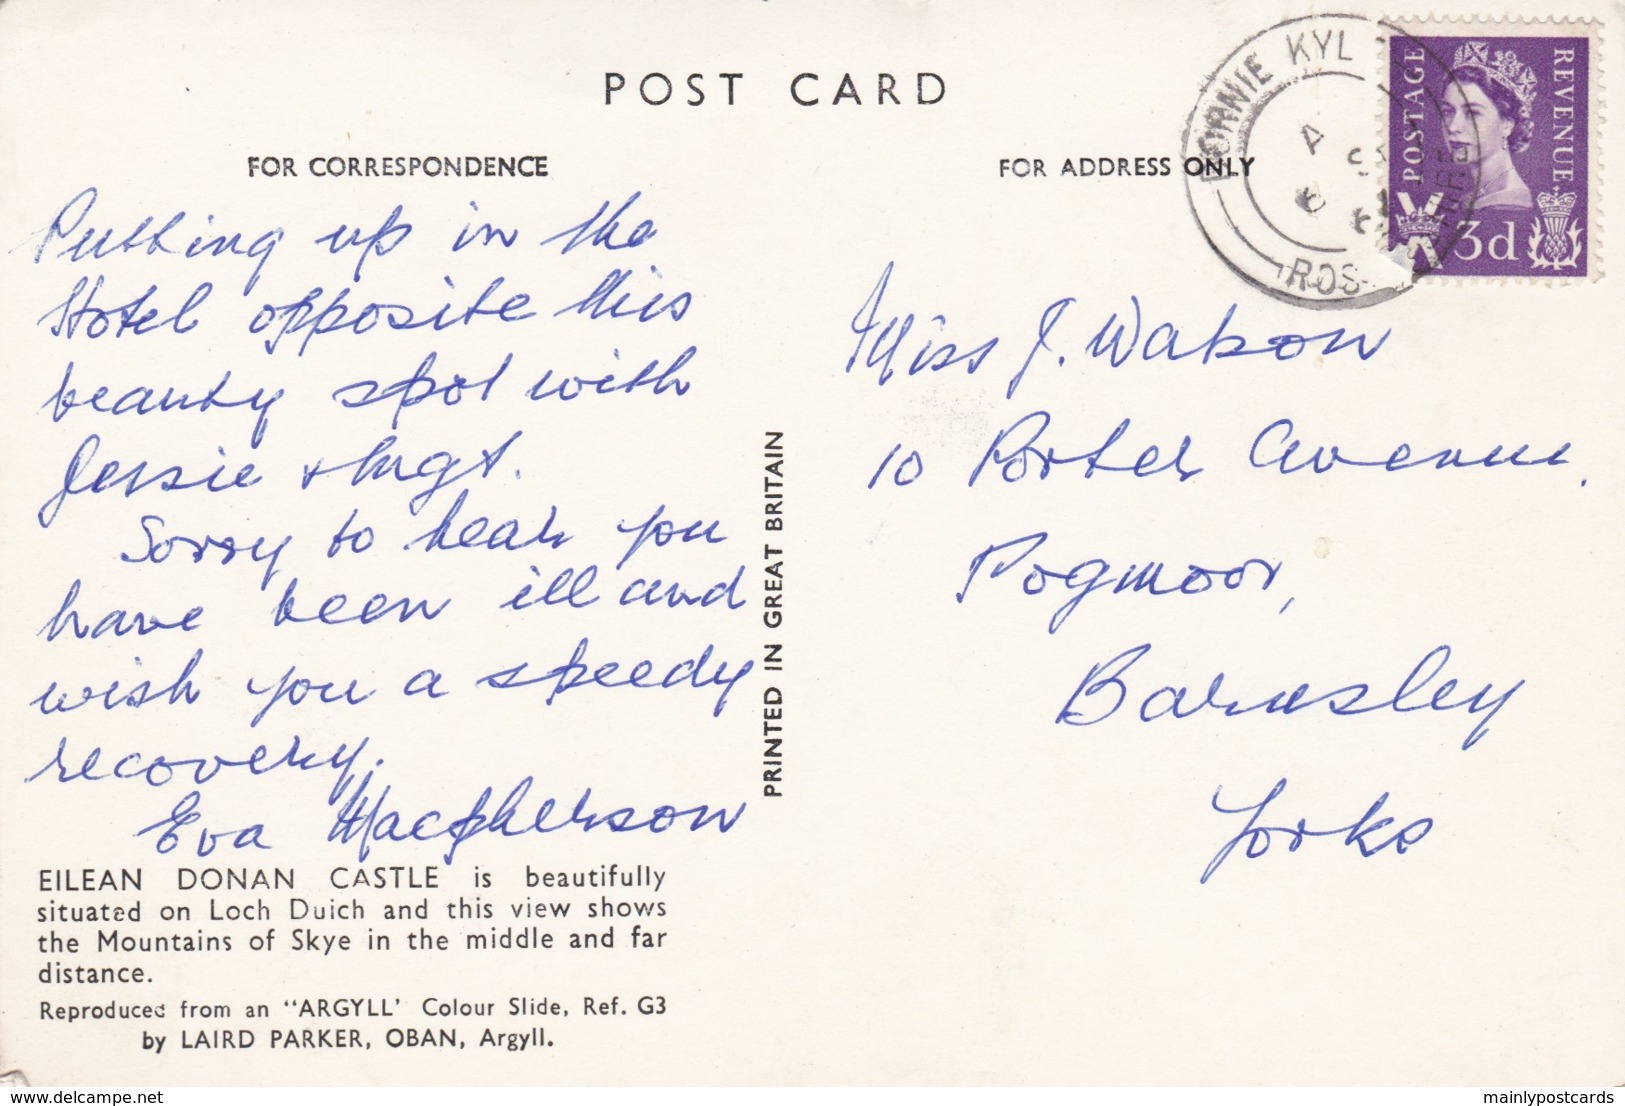 POST CARD
FOR CORRESPONDENCE
Putting up in the
Hotel opposite this
beauty spot with
Jessie +
Sorry to hear you
have been ill and
wish you a speedy
recovery.
Eva Macpherson
EILEAN DONAN CASTLE is beautifully
situated on Loch Duich and this view shows
the Mountains of Skye in the middle and far
distance.
Reproduced from an "ARGYLL' Colour Slide, Ref. G3
by LAIRD PARKER, OBAN, Argyll.
PRINTED IN GREAT BRITAIN
FOR ADDRESS ONLY
DORNIE KYL
ROS
POSTAGE
REVENUE
3d
Miss J. Watson
10 Porter Avenue.
Pogmoor,
Barnsley
Yorks
mainlypostcards